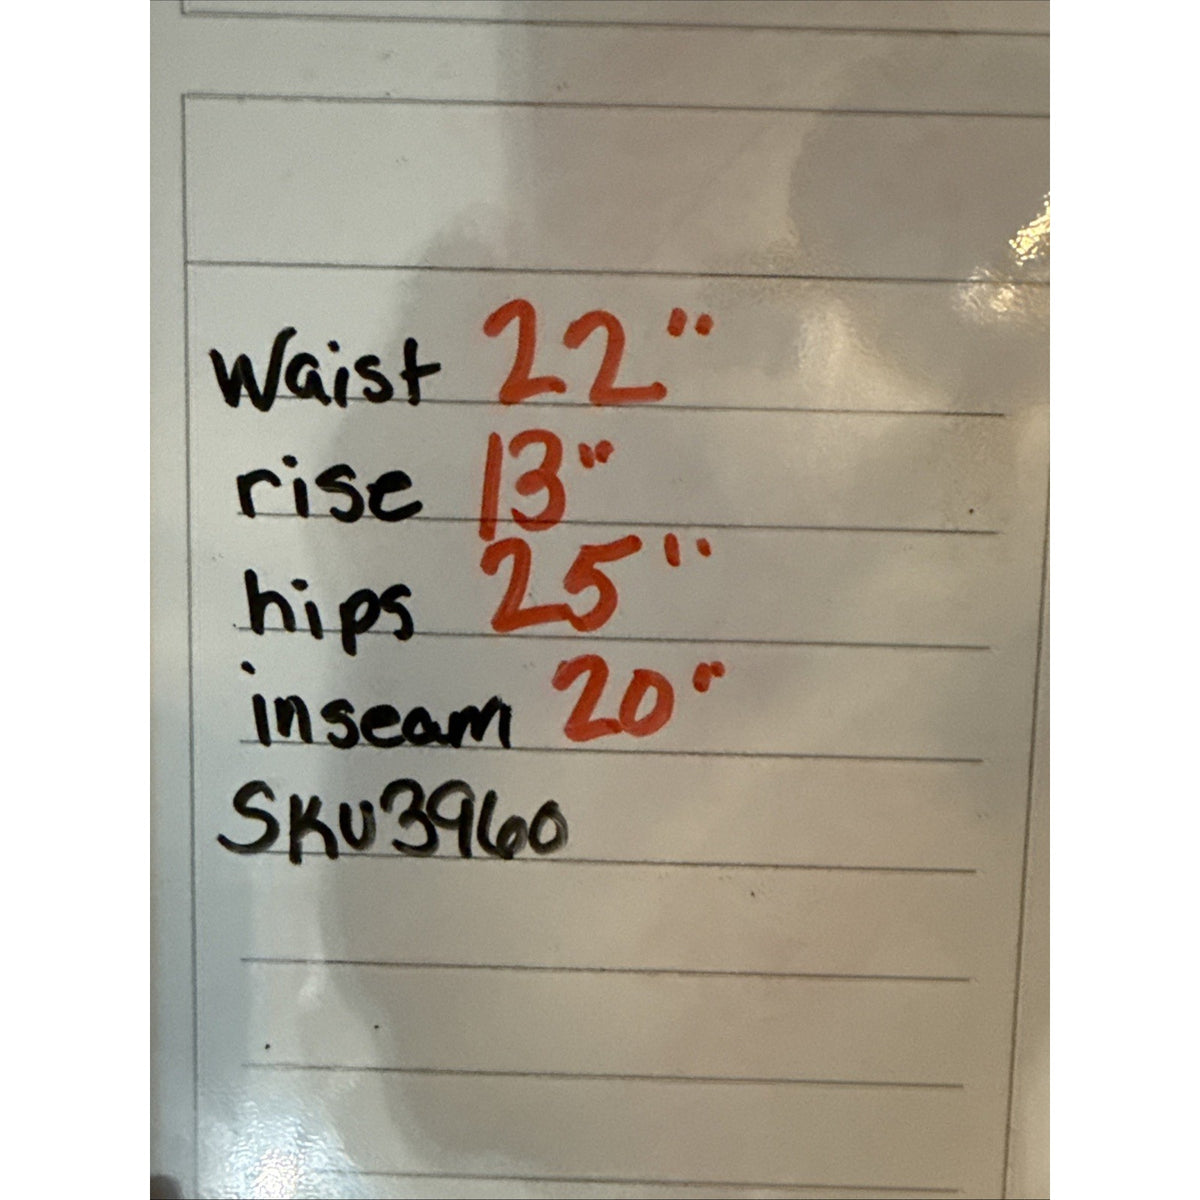 Waist 22"
rise 13"
hips 25"
inseam 20"
SKU3960